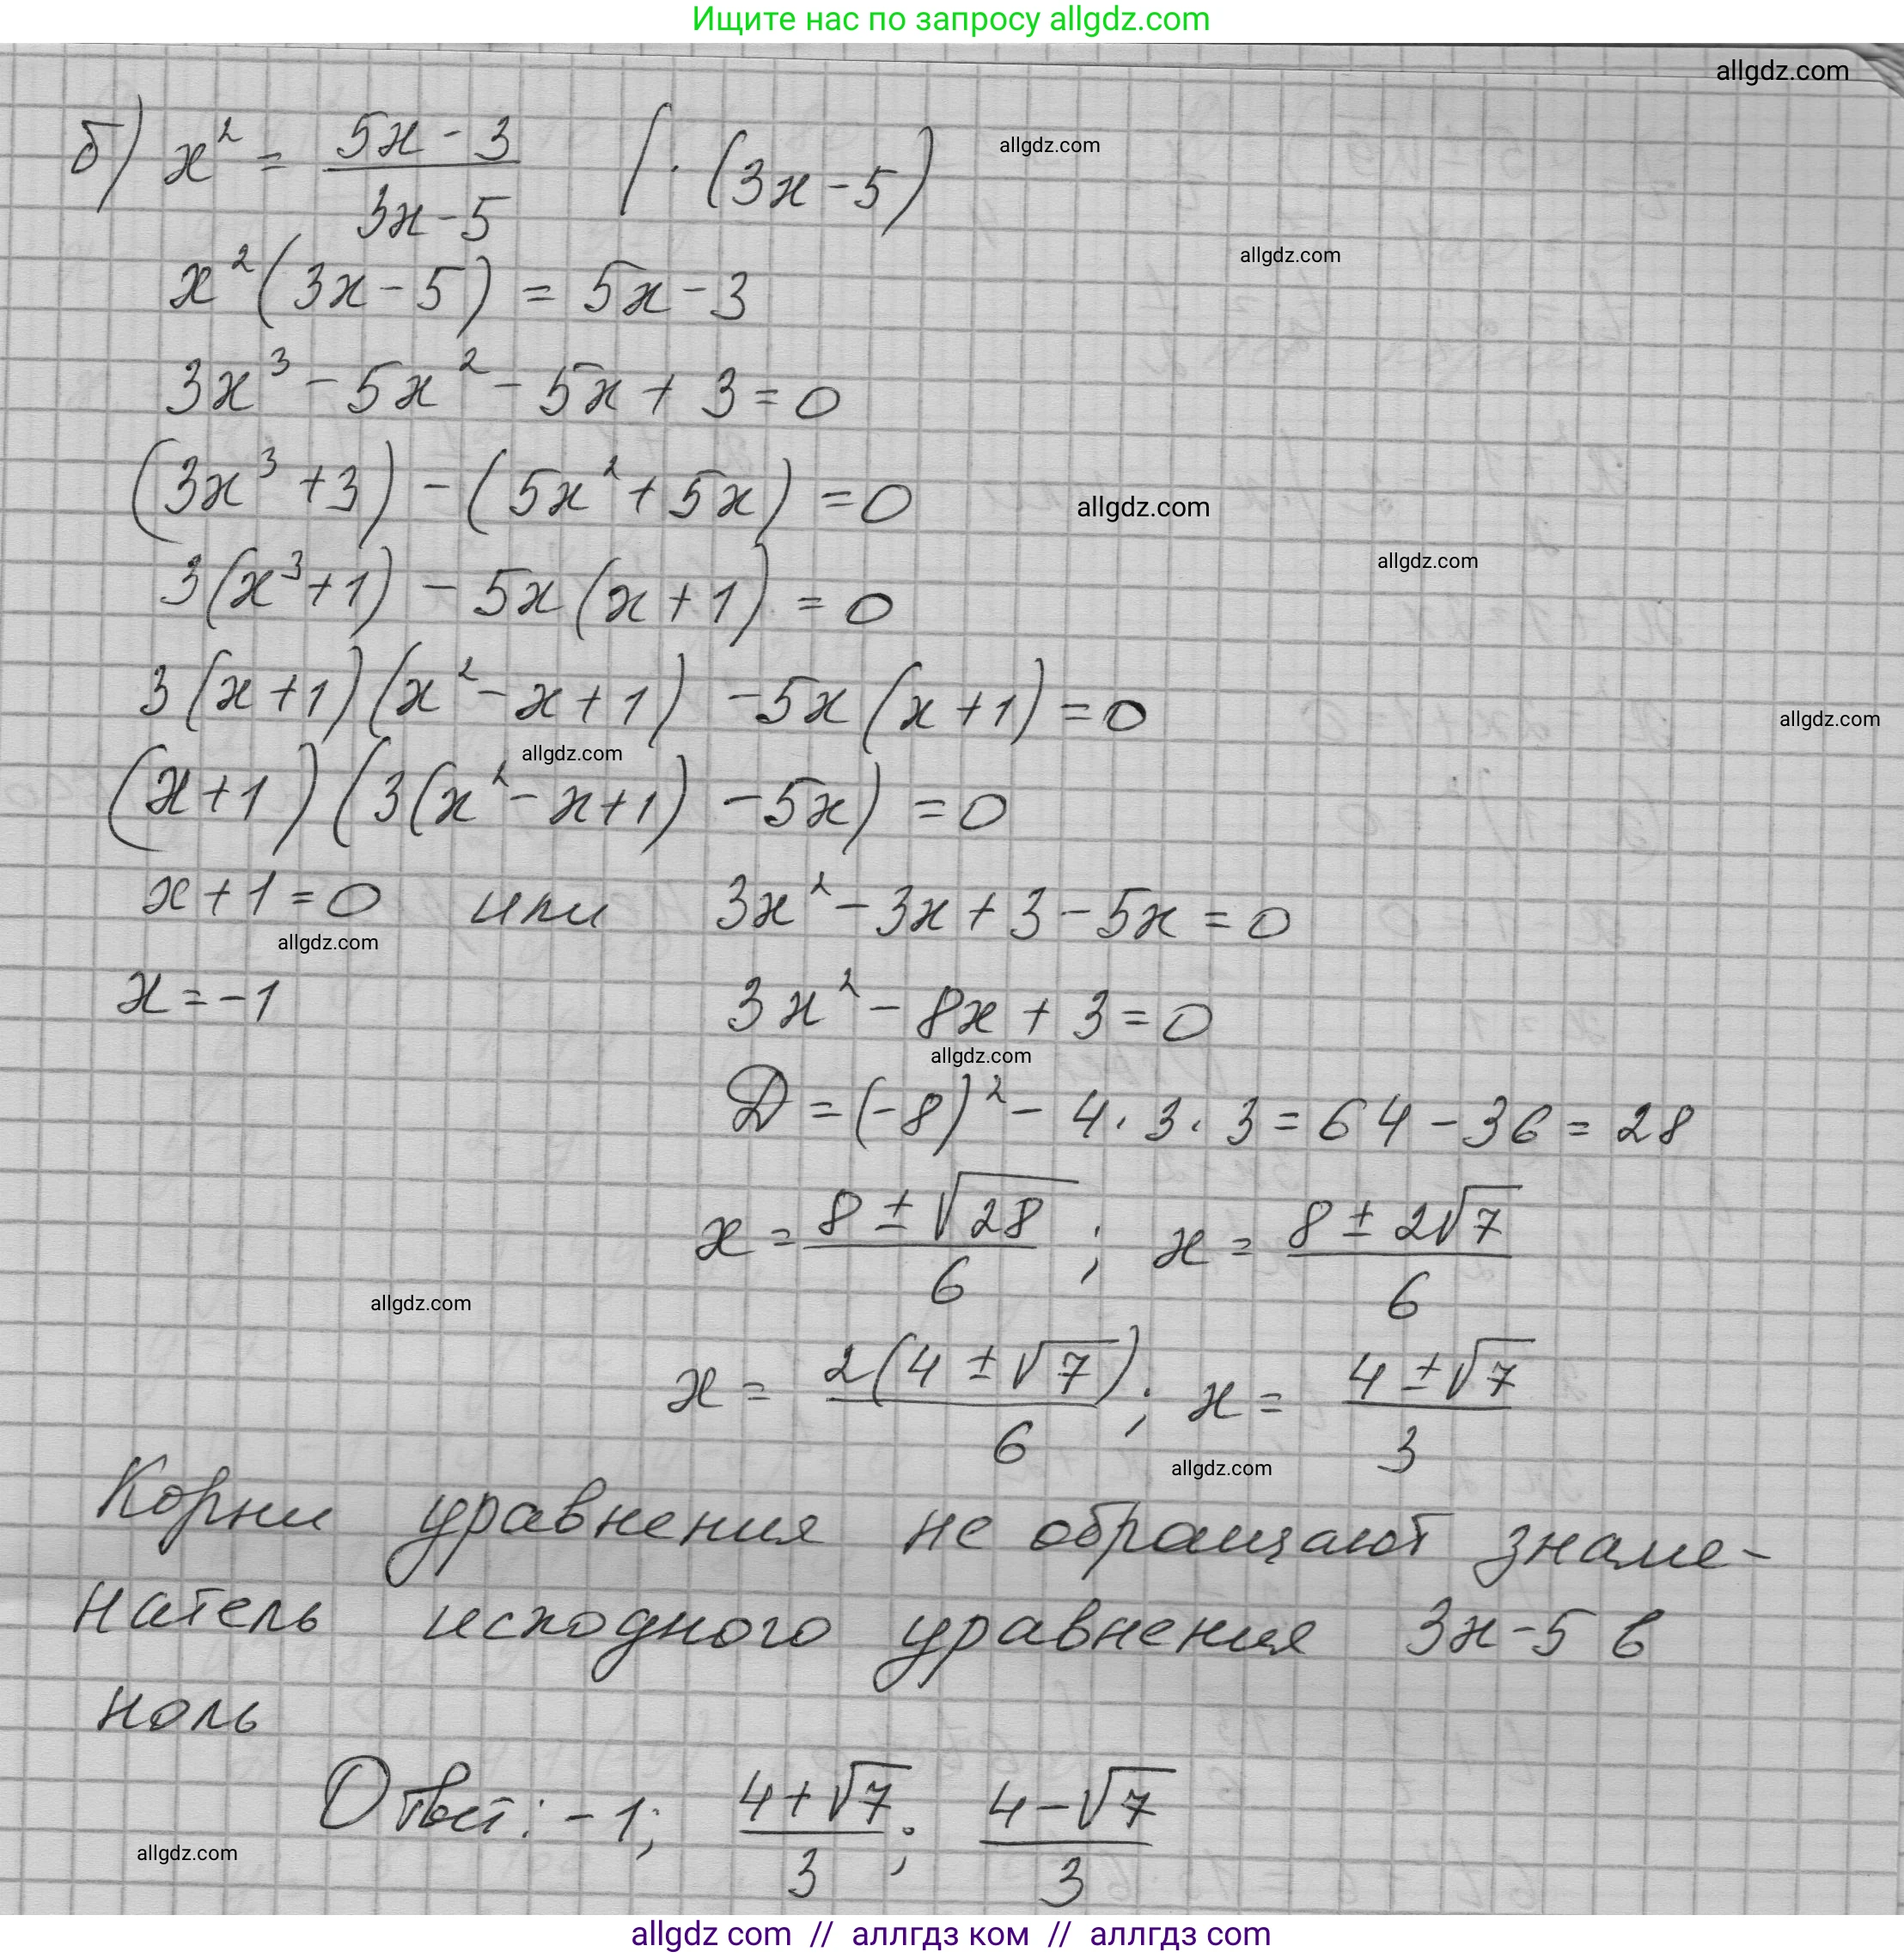 Ищите нас по запросу allgdz.com
allgdz.com
б) x² = (5x - 3)/(3x - 5) | · (3x - 5)
allgdz.com
allgdz.com
x²(3x - 5) = 5x - 3
3x³ - 5x² - 5x + 3 = 0
(3x³ + 3) - (5x² + 5x) = 0
allgdz.com
allgdz.com
3(x³ + 1) - 5x(x + 1) = 0
3(x + 1)(x² - x + 1) - 5x(x + 1) = 0
allgdz.com
allgdz.com
(x + 1)(3(x² - x + 1) - 5x) = 0
x + 1 = 0 или 3x² - 3x + 3 - 5x = 0
allgdz.com
x = -1 3x² - 8x + 3 = 0
allgdz.com
D = (-8)² - 4 · 3 · 3 = 64 - 36 = 28
x = (8 ± √28)/6 ; x = (8 ± 2√7)/6
allgdz.com
x = 2(4 ± √7)/6 ; x = (4 ± √7)/3
allgdz.com
Корни уравнения не обращают знаме-
натель исходного уравнения 3x - 5 в
ноль
Ответ: -1; (4 + √7)/3 ; (4 - √7)/3
allgdz.com
allgdz com // аллгдз ком // аллгдз com